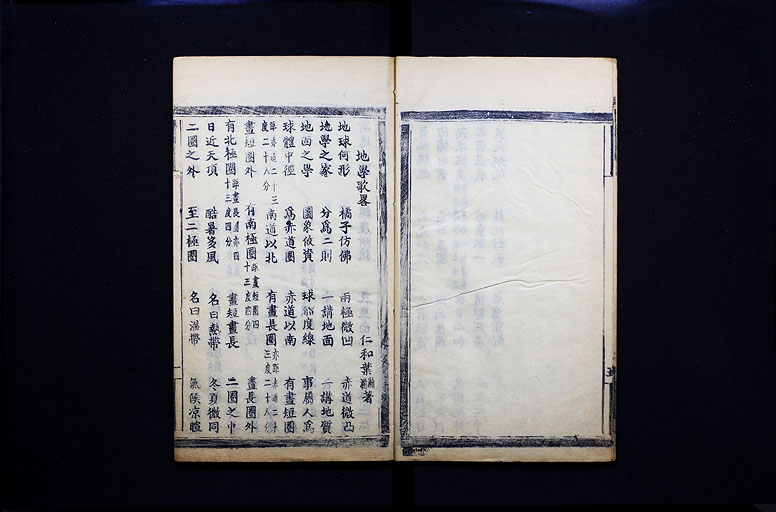 地學歌畧 仁和葉瀚瀾著
地球何形 橘子仿佛 兩極微凹 赤道微凸
地學之家 分爲二則 一講地面 一講地質
地面之學 圖象攸資 球船度線 事屬人爲
球體中徑 爲赤道圈 赤道以南 有晝短圈
距赤道二十三度二十八分 南道以北 有晝長圈 距赤道二十三度二十八分
晝短圈外 有南極圈 距晝短圈四十三度四分 晝長圈外
有北極圈 距晝長圈亦四十三度四分 晝短晝長 二圈之中
日近天頂 酷暑多風 名曰熱帶 冬夏微同
二圈之外 至二極圈 名曰溫帶 氣候凉暄